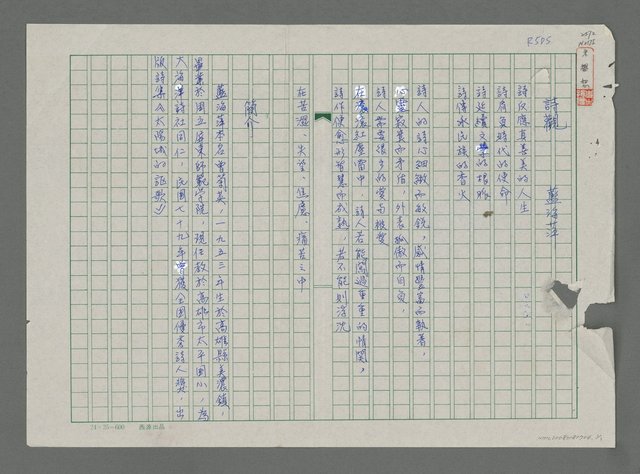 R5D5
詩觀　藍海萍
詩反應真善美的人生
詩肩負時代的使命
詩延續文學的根脈
詩傳承民族的香火
詩人的詩心細緻而敏銳，感情豐富而執著，
心靈寂寞而矛盾，外表孤傲而自負，
詩人常要很多的愛與被愛
在滾滾紅塵當中，詩人若能闖過重重的情關，
詩作便愈形智慧而成熟，若不能則浮沈
在苦澀、失望、焦慮、痛苦之中
簡介
藍海萍本名曾菊英，一九五三年生於高雄縣美濃鎮，
畢業於國立屏東師範學院，現任教於高雄市太平國小，為
大海洋詩社同仁，民國七十九年曾獲全國優秀詩人獎 出
版詩集《太陽城的謳歌》
24×25=600　燕源出品